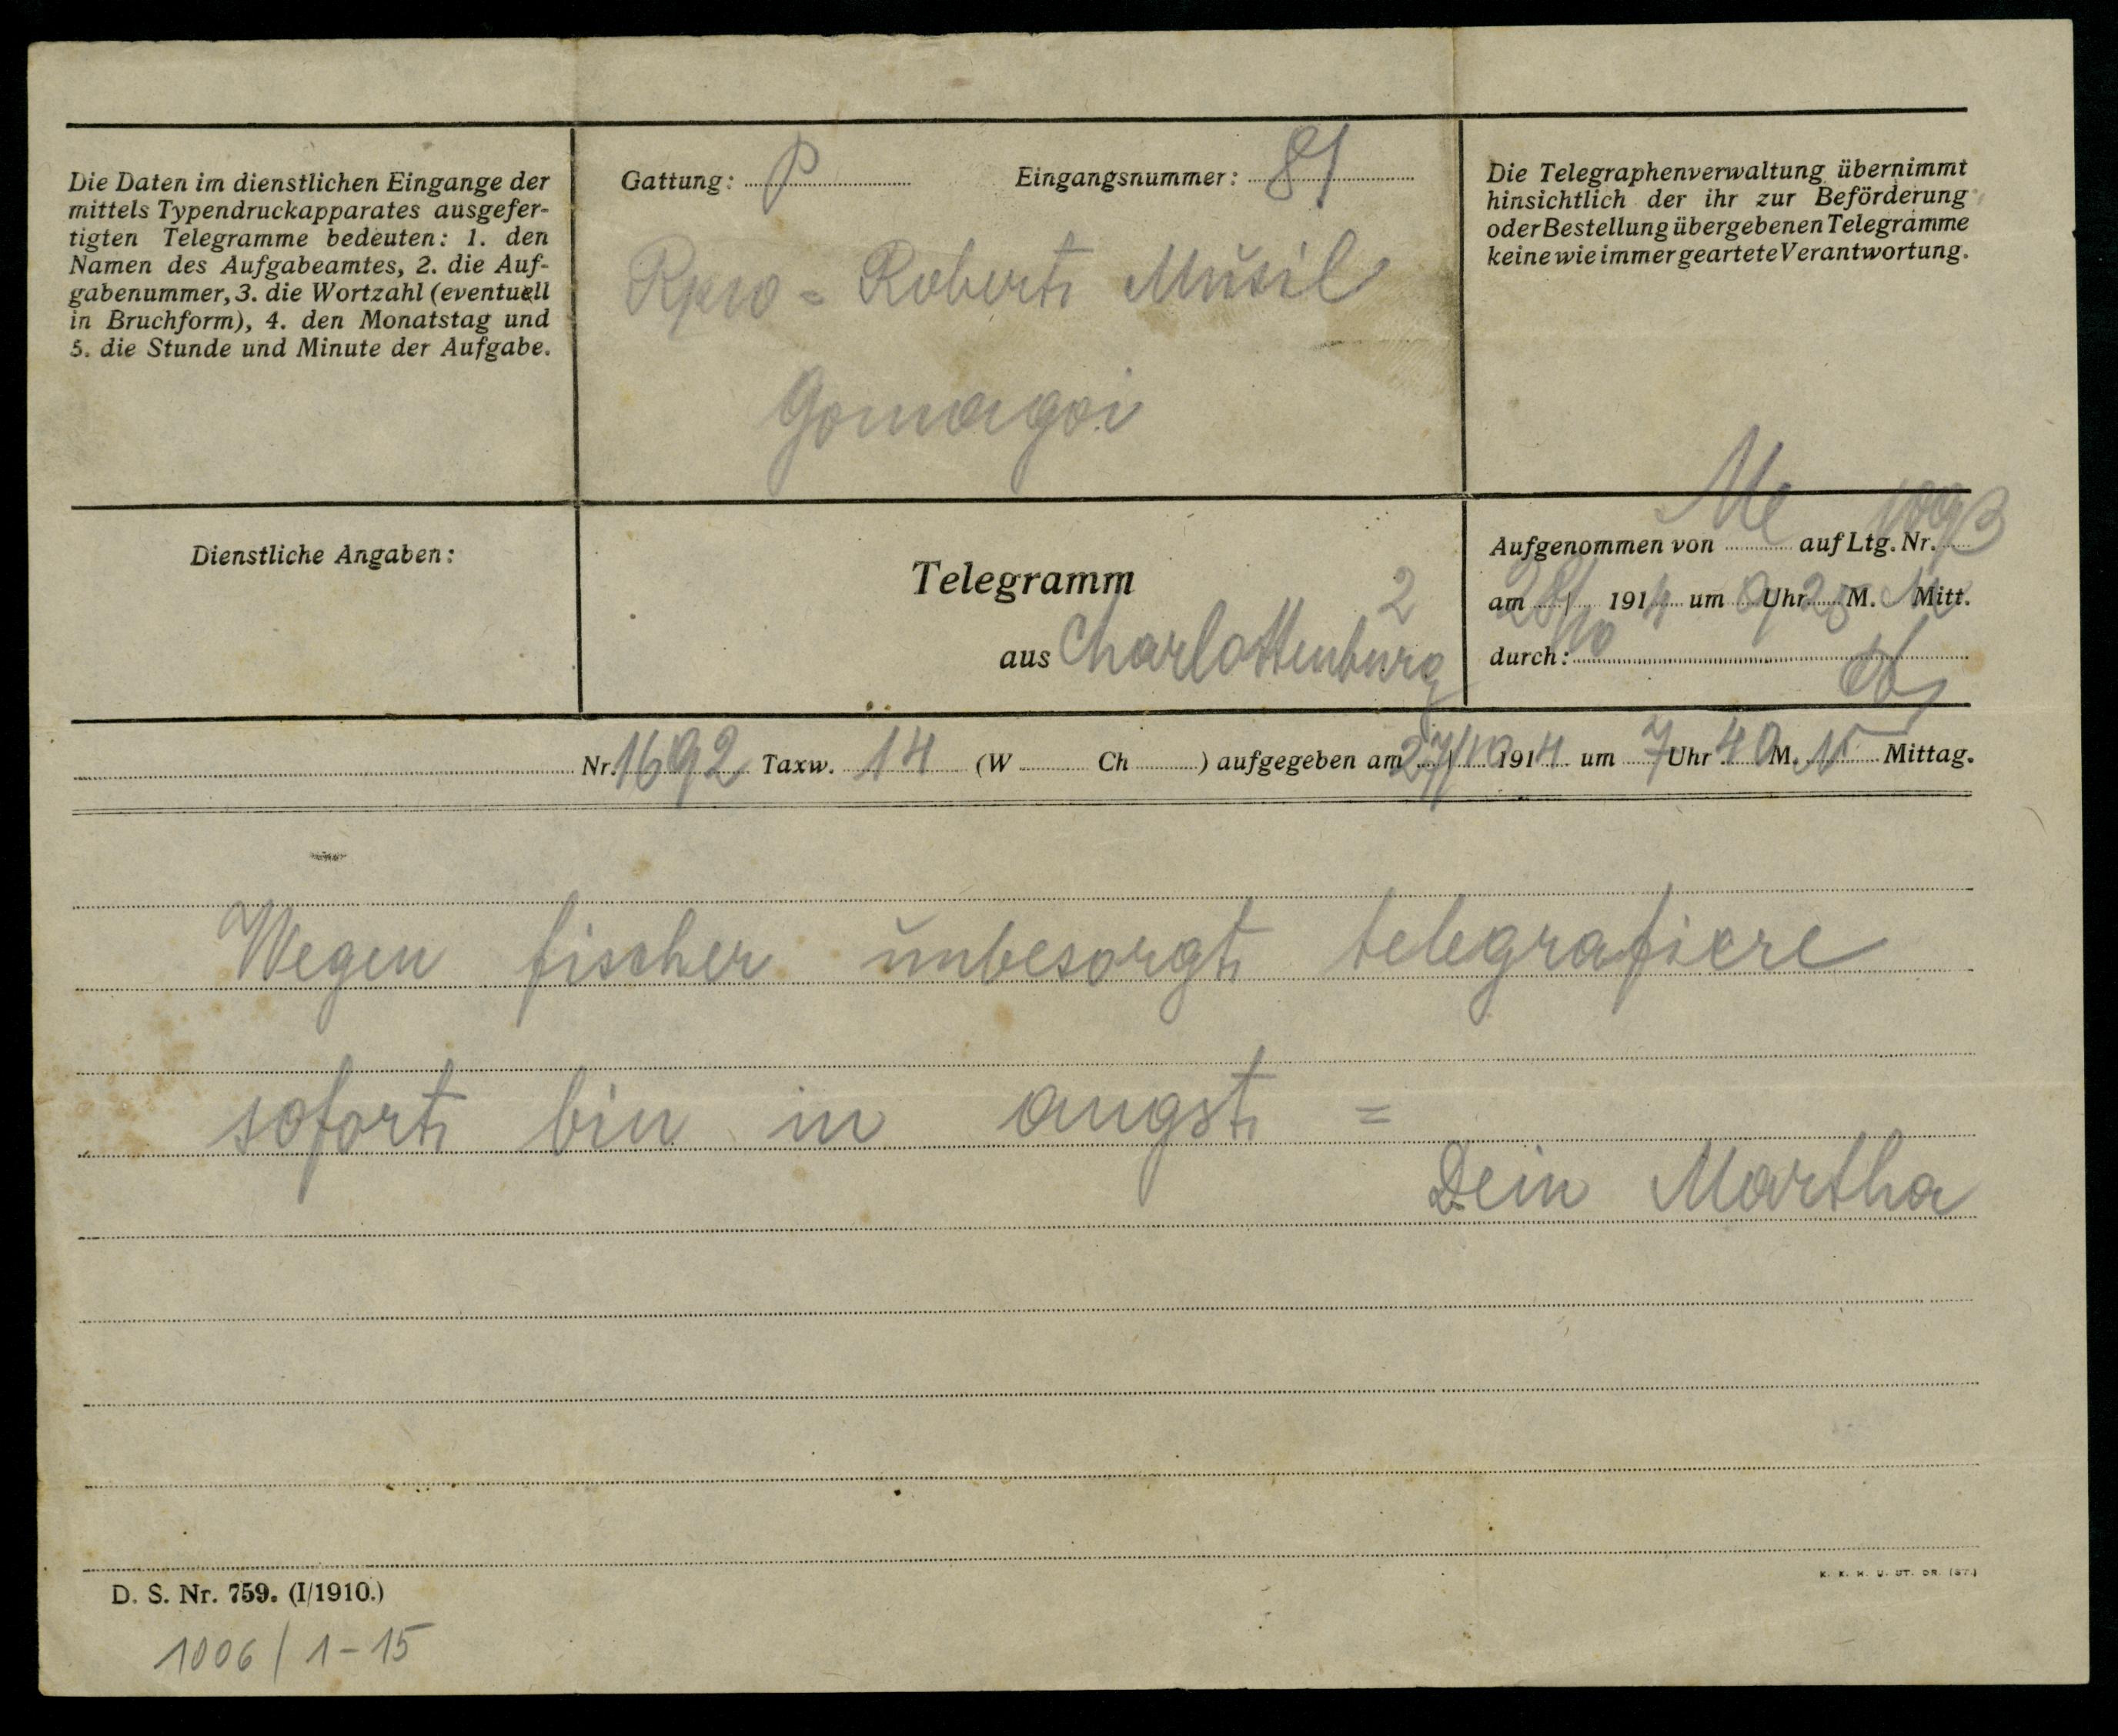 Die Daten im dienstlichen Eingange der
mittels Typendruckapparates ausgefer-
tigten Telegramme bedeuten: 1. den
Namen des Aufgabeamtes, 2. die Auf-
gabenummer, 3. die Wortzahl (eventuell
in Bruchform), 4. den Monatstag und
5. die Stunde und Minute der Aufgabe.
Gattung: P Eingangsnummer: 81
Robert Musil
Gomagoi
Die Telegraphenverwaltung übernimmt
hinsichtlich der ihr zur Beförderung
oder Bestellung übergebenen Telegramme
keine wie immer geartete Verantwortung.
Dienstliche Angaben:
Telegramm 2
aus Charlottenburg
Aufgenommen von Me auf Ltg. Nr.
am 28/10 1914 um 9 Uhr 25 M. Mitt.
durch:
Nr. 1692 Taxw. 14 (W Ch ) aufgegeben am 27/10 1914 um 7 Uhr 40 M. N Mittag.
Wegen fischer unbesorgt telegrafiere
sofort bin in angst =
Dein Martha
D. S. Nr. 759. (I/1910.)
1006 / 1-15